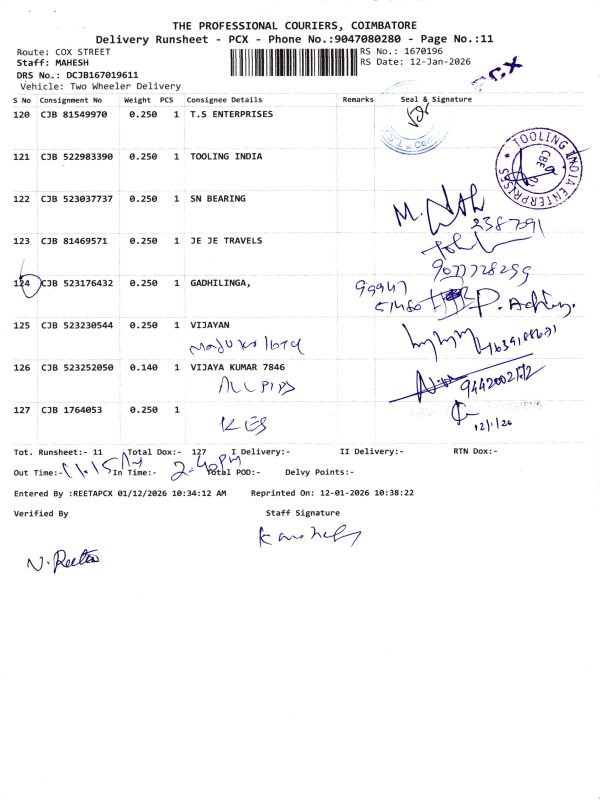 THE PROFESSIONAL COURIERS, COIMBATORE
Delivery Runsheet - PCX - Phone No.:9047080280 - Page No.:11
Route: COX STREET
RS No.: 1670196
Staff: MAHESH
RS Date: 12-Jan-2026
DRS No.: DCJB167019611
Vehicle: Two Wheeler Delivery
S No Consignment No Weight PCS Consignee Details Remarks Seal & Signature
120 CJB 81549970 0.250 1 T.S ENTERPRISES
121 CJB 522983390 0.250 1 TOOLING INDIA
TOOLING INDIA ENTERPRISES
CBE
122 CJB 523037737 0.250 1 SN BEARING
123 CJB 81469571 0.250 1 JE JE TRAVELS
9077728299
124 CJB 523176432 0.250 1 GADHILINGA,
99947
125 CJB 523230544 0.250 1 VIJAYAN
126 CJB 523252050 0.140 1 VIJAYA KUMAR 7846
127 CJB 1764053 0.250 1
KES
12/1/26
Tot. Runsheet:- 11 Total Dox:- 127 I Delivery:- II Delivery:- RTN Dox:-
Out Time:- In Time:- 2.40PM Total POD:- Delvy Points:-
Entered By :REETAPCX 01/12/2026 10:34:12 AM Reprinted On: 12-01-2026 10:38:22
Verified By Staff Signature
N. Reeta